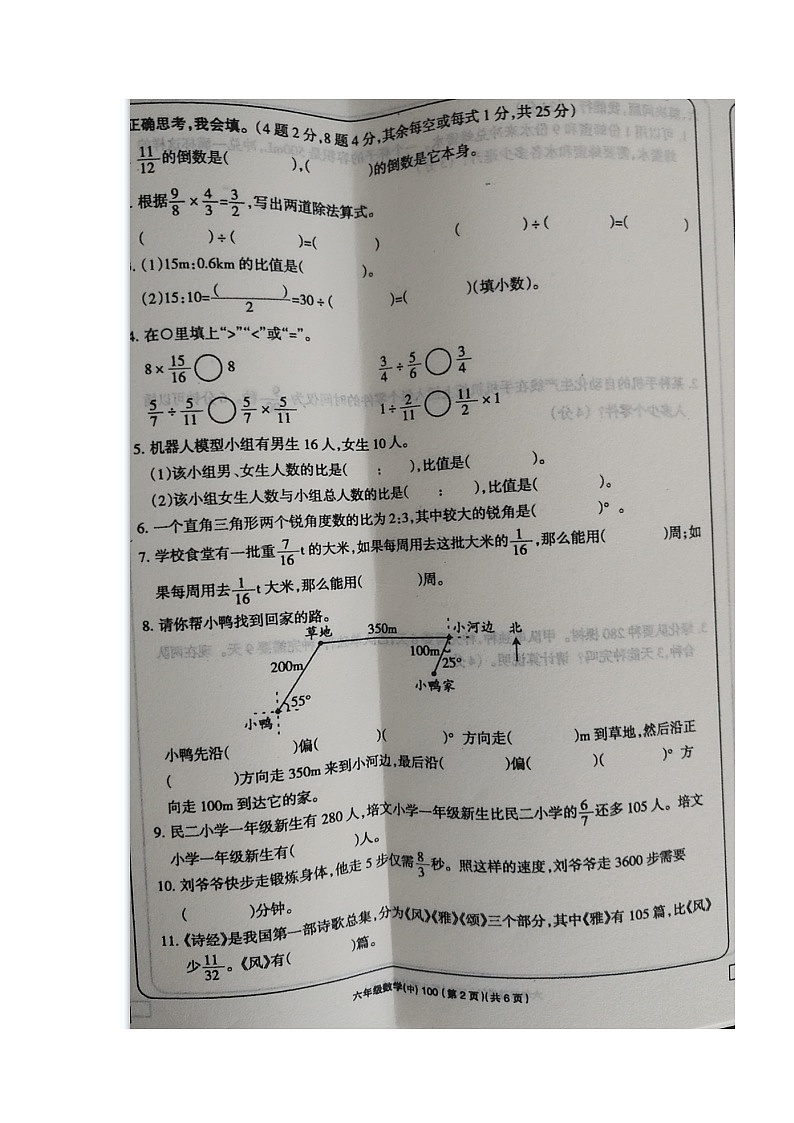 正确思考,我会填。(4题2分,8题4分,其余每空或每式1分,共25分)
11/12的倒数是(  ),(  )的倒数是它本身。
. 根据9/8×4/3=3/2,写出两道除法算式。
(  )÷(  )=(  )  (  )÷(  )=(  )
(1)15m:0.6km的比值是(  )。
(2)15:10=(  )/2=30÷(  )=(  )(填小数)。
4. 在○里填上“>”“<”或“=”。
8×15/16○8  3/4÷5/6○3/4
5/7÷5/11○5/7×5/11  1÷2/11○11/2×1
5. 机器人模型小组有男生16人,女生10人。
(1)该小组男、女生人数的比是(  :  ),比值是(  )。
(2)该小组女生人数与小组总人数的比是(  :  ),比值是(  )。
6. 一个直角三角形两个锐角度数的比为2:3,其中较大的锐角是(  )°。
7. 学校食堂有一批重7/16t的大米,如果每周用去这批大米的1/16,那么能用(  )周;如
果每周用去1/16t大米,那么能用(  )周。
8. 请你帮小鸭找到回家的路。
草地 350m 小河边 北
200m 100m 25°
小鸭家
55°
小鸭
小鸭先沿(  )偏(  )(  )°方向走(  )m到草地,然后沿正
(  )方向走350m来到小河边,最后沿(  )偏(  )(  )°方
向走100m到达它的家。
9. 民二小学一年级新生有280人,培文小学一年级新生比民二小学的6/7还多105人。培文
小学一年级新生有(  )人。
10. 刘爷爷快步走锻炼身体,他走5步仅需8/3秒。照这样的速度,刘爷爷走3600步需要
(  )分钟。
11.《诗经》是我国第一部诗歌总集,分为《风》《雅》《颂》三个部分,其中《雅》有105篇,比《风》
少11/32。《风》有(  )篇。
六年级数学(中) 100 (第2页)(共6页)